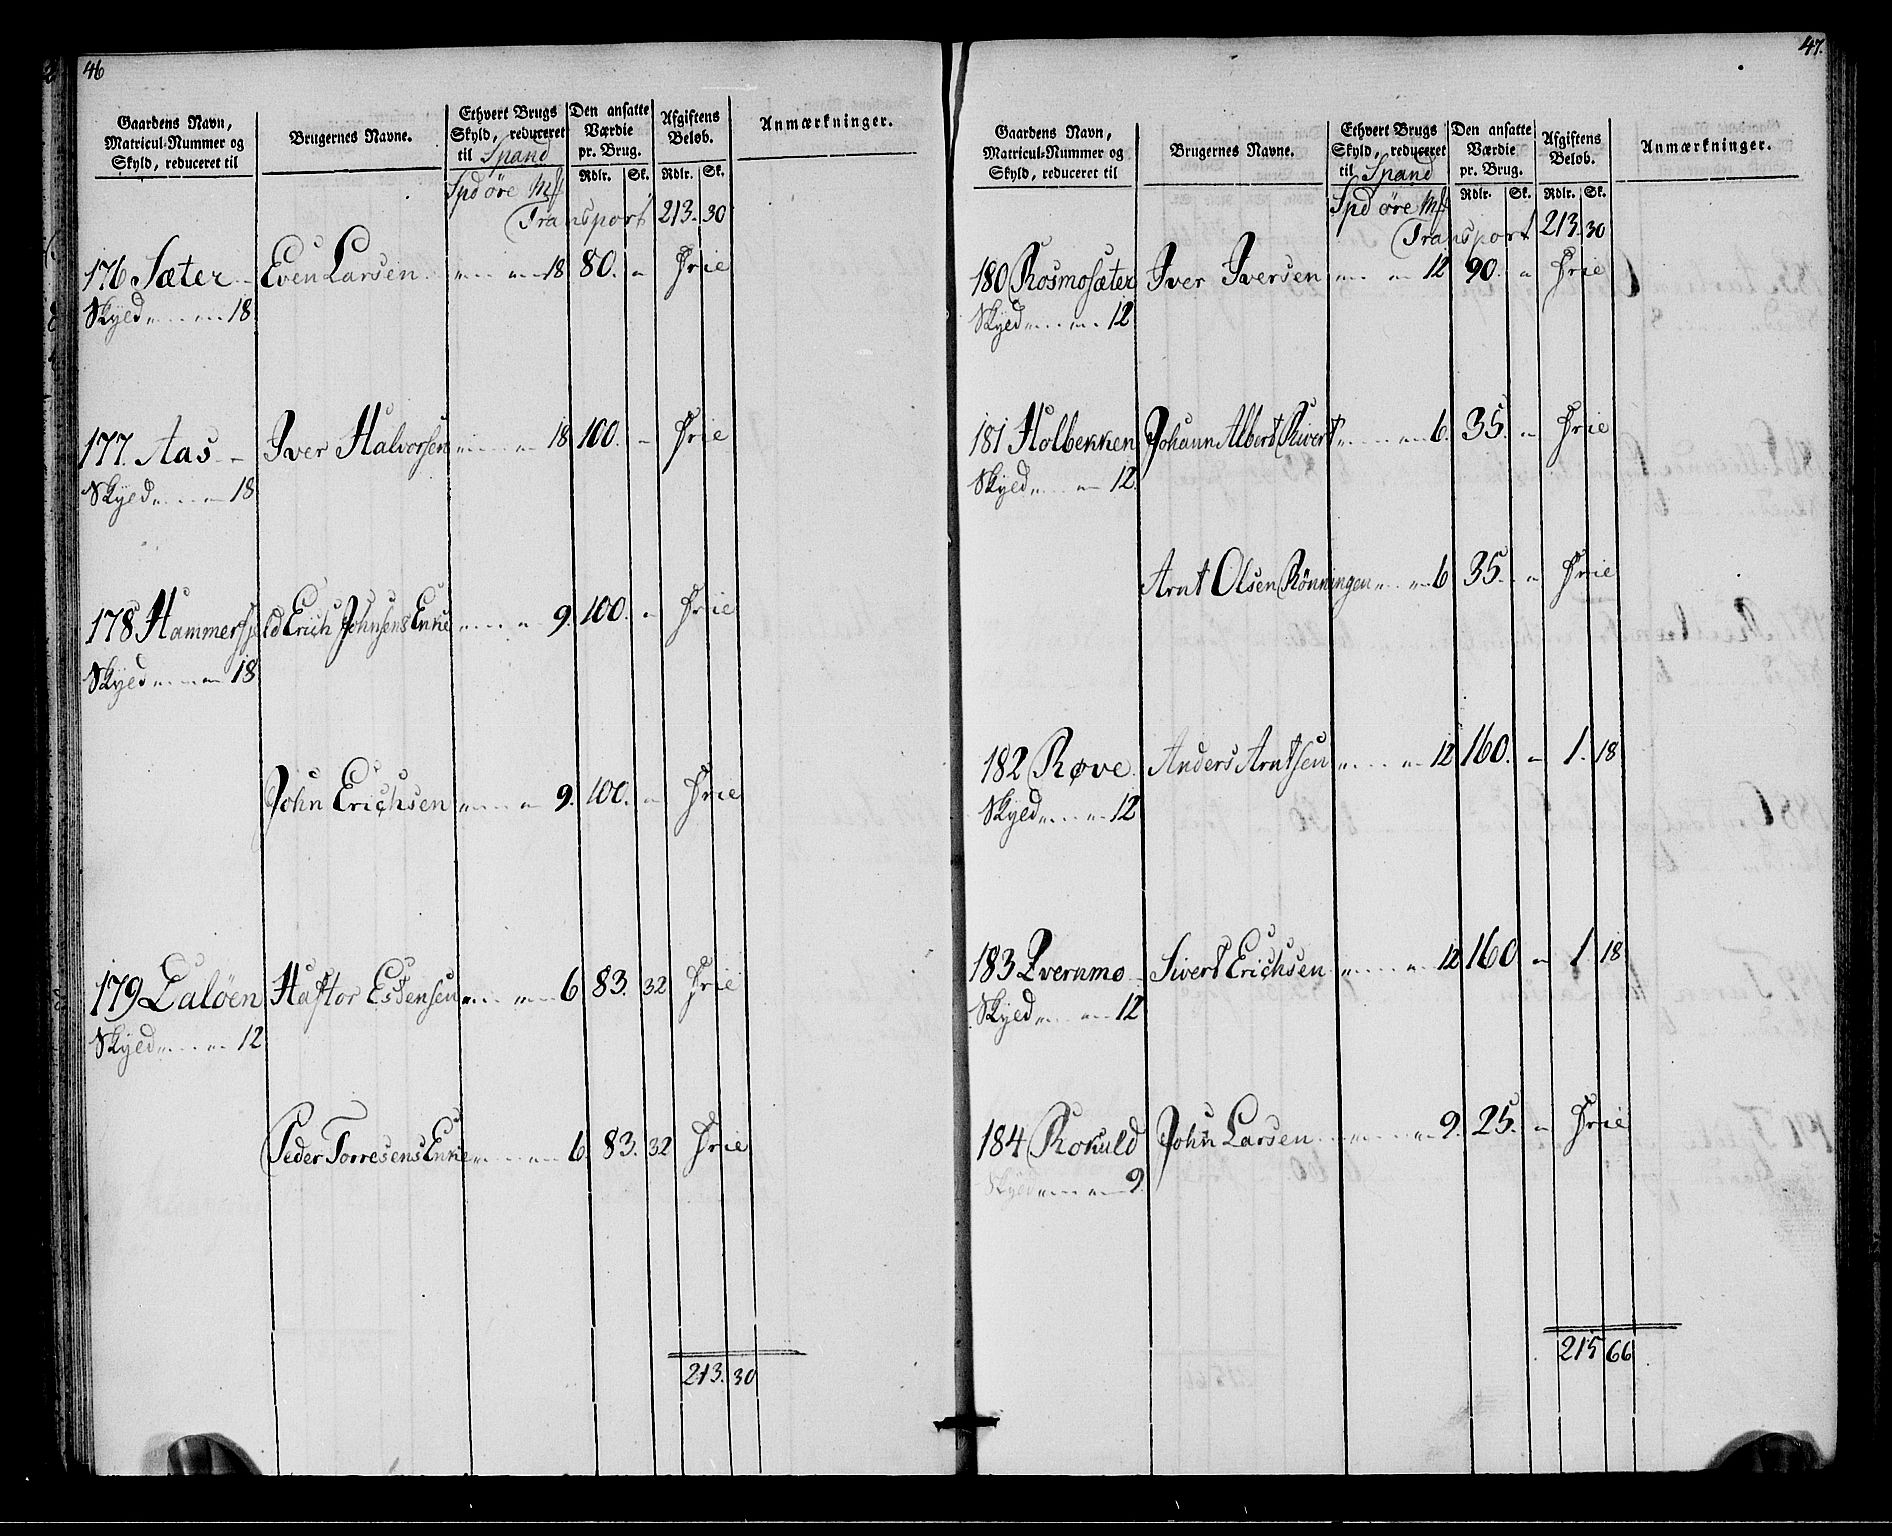 46
Gaardens Navn, Matricul-Nummer og Skyld, reduceret til
Brugernes Navne.
Ethvert Brugs Skyld, reduceret til Spand
Den ansatte Værdie pr. Brug.
Afgiftens Beløb.
Anmærkninger.
Rdlr. Sk. Rdlr. Sk.
Spd öre Mk
Transport 213. 30
176 Sæter Even Larsen 18 80. " Frie
Skyld 18
177. Aas Iver Halvorsen 18 100. " Frie
Skyld 18
178 Hammersfjeld Erich Johnsens Enke 9. 100. " Frie
Skyld 18
John Erichsen 9. 100. " Frie
179 Daløen Haftor Estensen 6 83. 32 Frie
Skyld 12
Peder Torresens Enke 6 83. 32 Frie
213. 30
47.
Gaardens Navn, Matricul-Nummer og Skyld, reduceret til
Brugernes Navne.
Ethvert Brugs Skyld, reduceret til Spand
Den ansatte Værdie pr. Brug.
Afgiftens Beløb.
Anmærkninger.
Rdlr. Sk. Rdlr. Sk.
Spd öre Mk
Transport 213 30
180 Rosmosæter Iver Iversen 12 90. " Frie
Skyld 12
181 Holbekken Johann Albert 6. 35. " Frie
Skyld 12
Arnt Olsen Rönningen 6 35. " Frie
182 Røve Anders Arntsen 12 160. " 1. 18
Skyld 12
183 Qvernmo Sivert Erichsen 12 160 " 1 18
Skyld 12
184 Rokuld John Larsen 9. 25. " Frie
Skyld 9
215 66